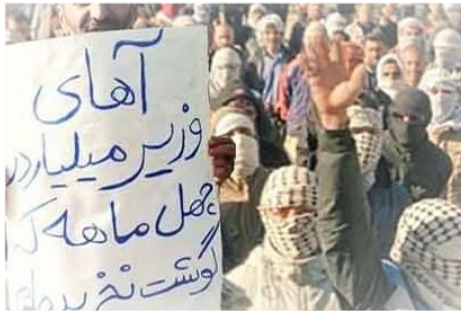 آهای
وزیر میلیاردر
چهل ماهه که
گوشت نخریدم